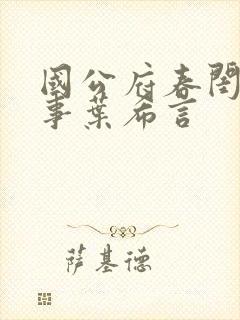 國公府春閨
事葉布言
萨基德